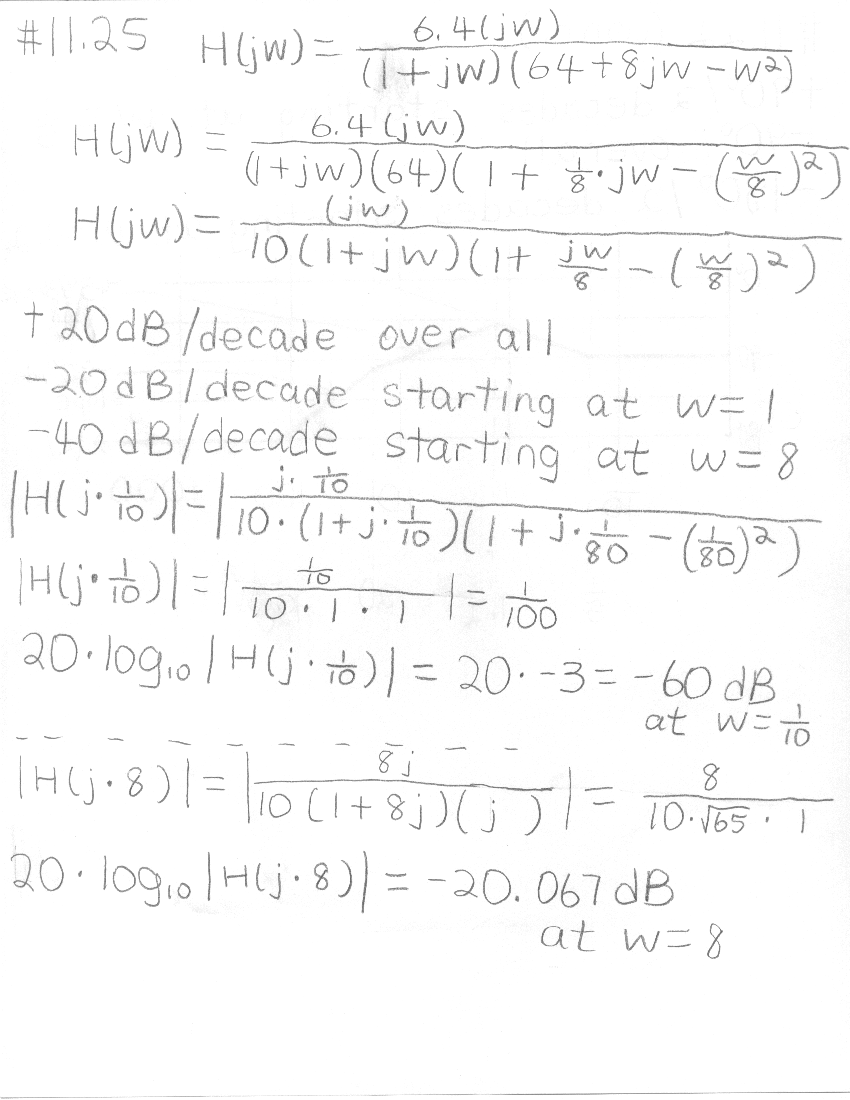 #11.25 H(jw) = 6.4(jw) / (1+jw)(64+8jw-w²)
H(jw) = 6.4(jw) / (1+jw)(64)(1 + 1/8·jw - (w/8)²)
H(jw) = (jw) / 10(1+jw)(1+ jw/8 - (w/8)²)
+20dB/decade over all
-20dB/decade starting at w=1
-40dB/decade starting at w=8
|H(j·1/10)| = | j·1/10 / 10·(1+j·1/10)(1+j·1/80 - (1/80)²)
|H(j·1/10)| = | 1/10 / 10·1·1 | = 1/100
20·log₁₀|H(j·1/10)| = 20·-3 = -60 dB
at w=1/10
|H(j·8)| = | 8j / 10(1+8j)(j ) | = 8 / 10·√65·1
20·log₁₀|H(j·8)| = -20.067dB
at w=8